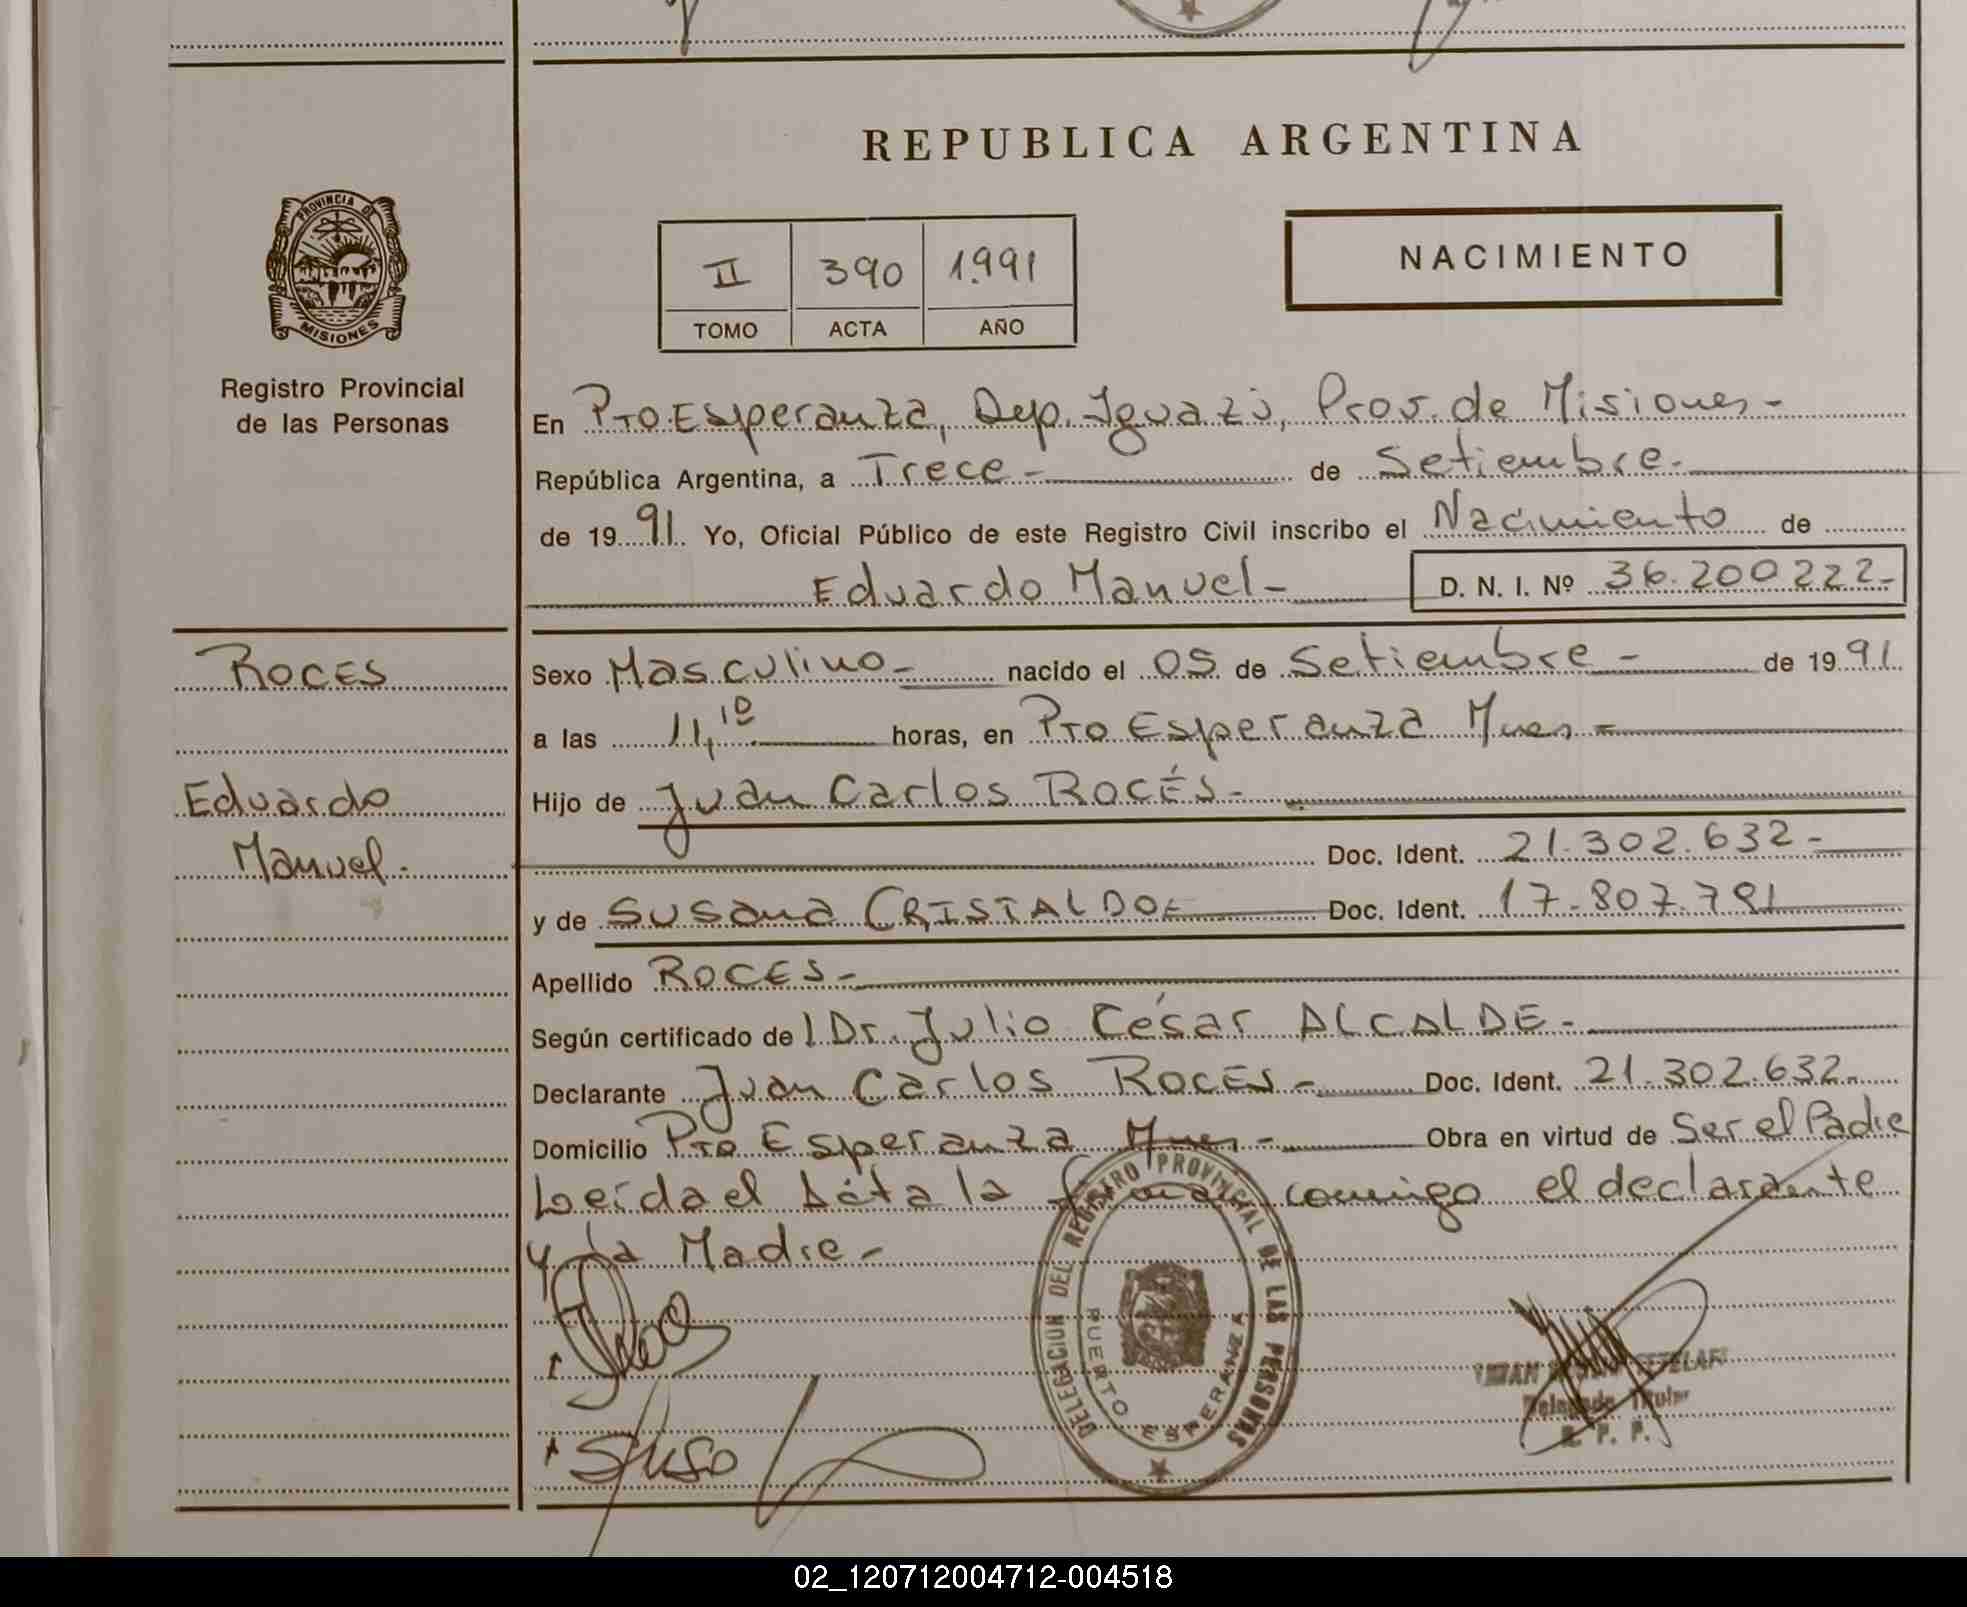 REPUBLICA ARGENTINA
PROVINCIA DE
MISIONES
Registro Provincial
de las Personas
II 390 1.991
TOMO ACTA AÑO
NACIMIENTO
En Pto Esperanza, Dep. Iguazú, Prov. de Misiones-
República Argentina, a Trece- de Setiembre-
de 19 91. Yo, Oficial Público de este Registro Civil inscribo el Nacimiento de
Eduardo Manuel- D. N. I. Nº 36.200222-
ROCES
Eduardo
Manuel.
Sexo Masculino- nacido el 05 de Setiembre- de 19 91.
a las 11,10 horas, en Pto Esperanza Mnes-
Hijo de Juan Carlos ROCÉS-
Doc. Ident. 21.302.632-
y de Susana CRISTALDO- Doc. Ident. 17-807.791
Apellido ROCES-
Según certificado de l Dr. Julio César ALCALDE-
Declarante Juan Carlos ROCES- Doc. Ident. 21.302.632-
Domicilio Pto Esperanza Mnes- Obra en virtud de Ser el Padre
Leída el Acta la firman conmigo el declarante
y la Madre-
DELEGACION DEL REGISTRO PROVINCIAL DE LAS PERSONAS
PUERTO ESPERANZA
Delegado Titular
R. P. P.
02_120712004712-004518